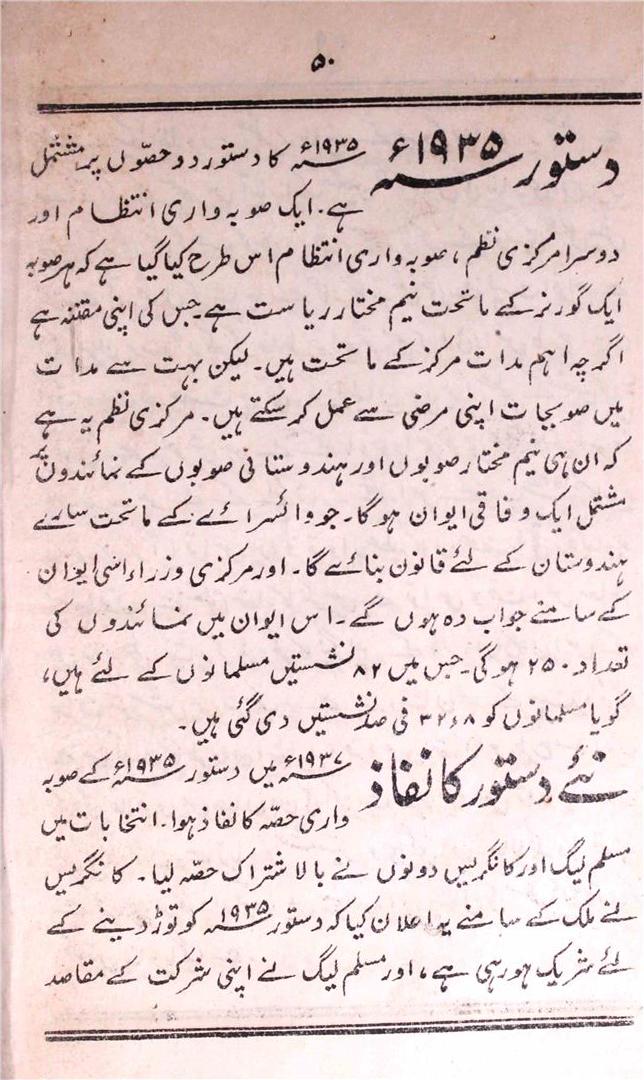 ۵۰
دستور ۱۹۳۵ء
۱۹۳۵ء کا دستور دو حصّوں پر مشتمل
ہے۔ ایک صوبہ واری انتظام اور
دوسرا مرکزی نظم، صوبہ واری انتظام اس طرح کیا گیا ہے کہ ہر صوبہ
ایک گورنر کے ماتحت نیم مختار ریاست ہے جس کی اپنی مقننہ ہے
اگرچہ اہم مدات مرکز کے ماتحت ہیں۔ لیکن بہت سے مدات
میں صوبجات اپنی مرضی سے عمل کر سکتے ہیں۔ مرکزی نظم یہ ہے
کہ ان ہی نیم مختار صوبوں اور ہندوستانی صوبوں کے نمائندوں پر
مشتمل ایک وفاقی ایوان ہوگا۔ جو وائسرائے کے ماتحت سارے
ہندوستان کے لئے قانون بنائے گا۔ اور مرکزی وزراء اسی ایوان
کے سامنے جواب دہ ہوں گے۔ اس ایوان میں نمائندوں کی
تعداد ۲۵۰ ہوگی۔ جس میں ۸۲ نشستیں مسلمانوں کے لئے ہیں،
گویا مسلمانوں کو ۳۲ء۸ فی صد نشستیں دی گئی ہیں۔
نئے دستور کا نفاذ
۱۹۳۷ء میں دستور ۱۹۳۵ء کے صوبہ
واری حصّہ کا نفاذ ہوا۔ انتخابات میں
مسلم لیگ اور کانگریس دونوں نے بالاشتراک حصّہ لیا۔ کانگریس
نے ملک کے سامنے یہ اعلان کیا کہ دستور ۱۹۳۵ کو توڑ دینے کے
لئے شریک ہو رہی ہے، اور مسلم لیگ نے اپنی شرکت کے مقاصد